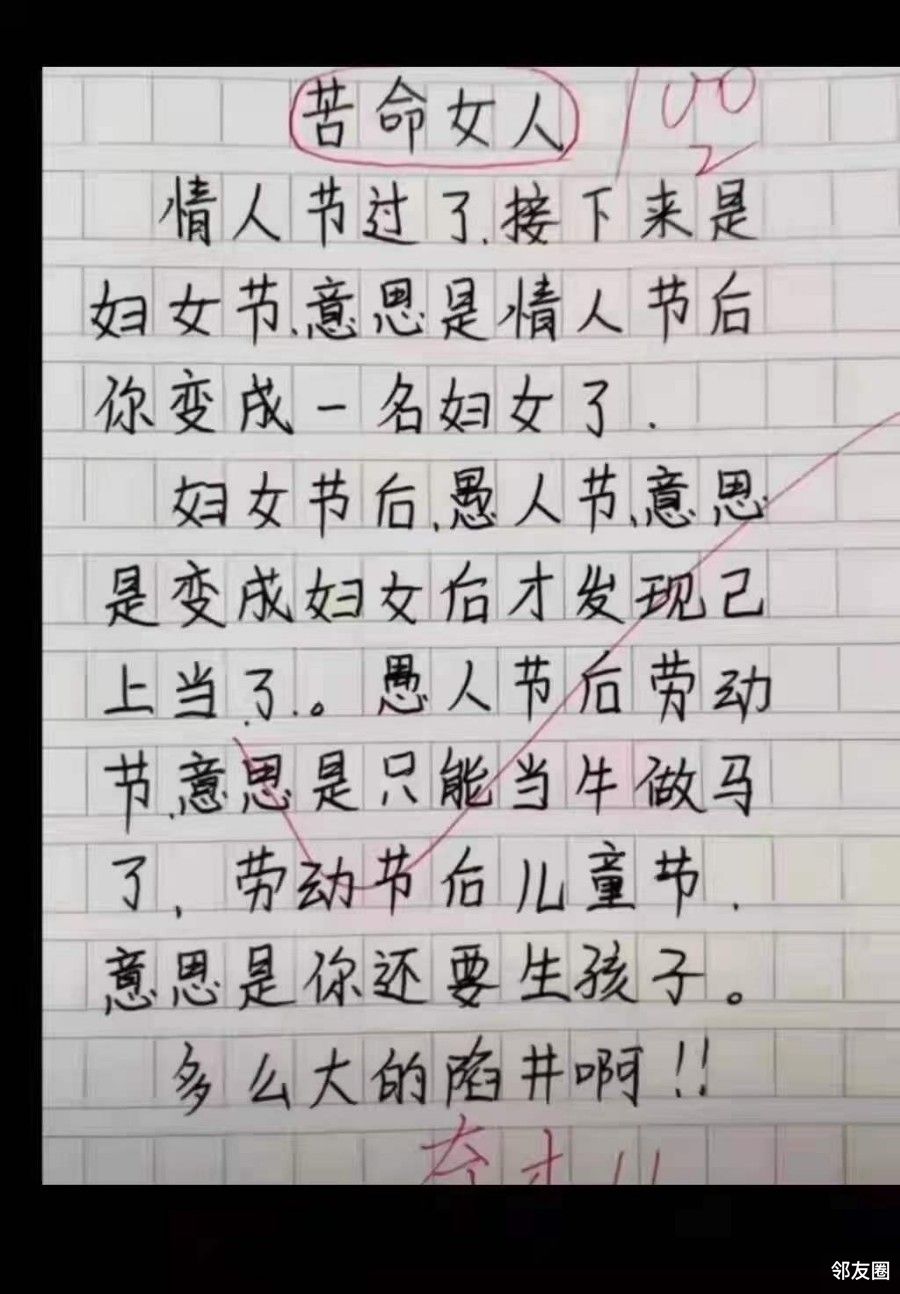 苦命女人
100
情人节过了.接下来是
妇女节、意思是情人节后
你变成一名妇女了.
妇女节后、愚人节、意思
是变成妇女后才发现己
上当了.。愚人节后劳动
节.意思是只能当牛做马
了,劳动节后儿童节.
意思是你还要生孩子。
多么大的陷井啊!!
邻友圈